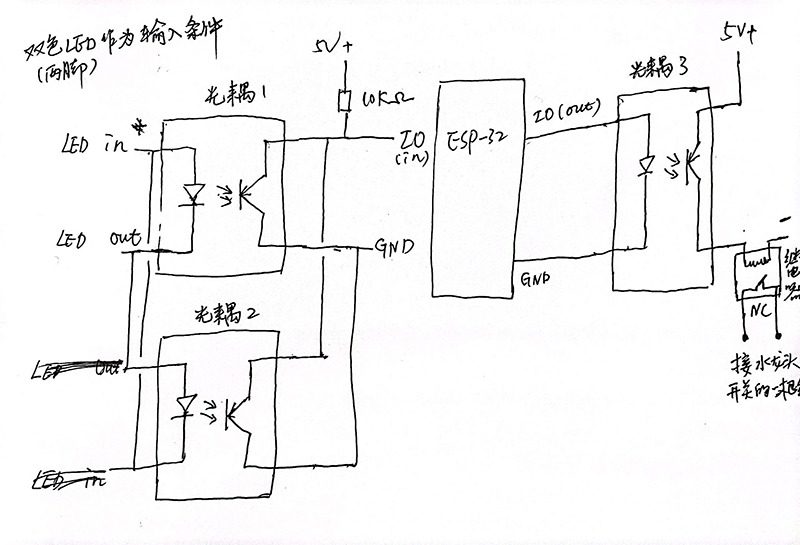 双色LED作为输入条件
(两脚)
光耦1
5V+
10KΩ
LED in *
LED out
IO
(in)
GND
光耦2
out
in
ESP-32
IO(out)
GND
光耦3
5V+
继电器
NC
接水龙头
开关的一根